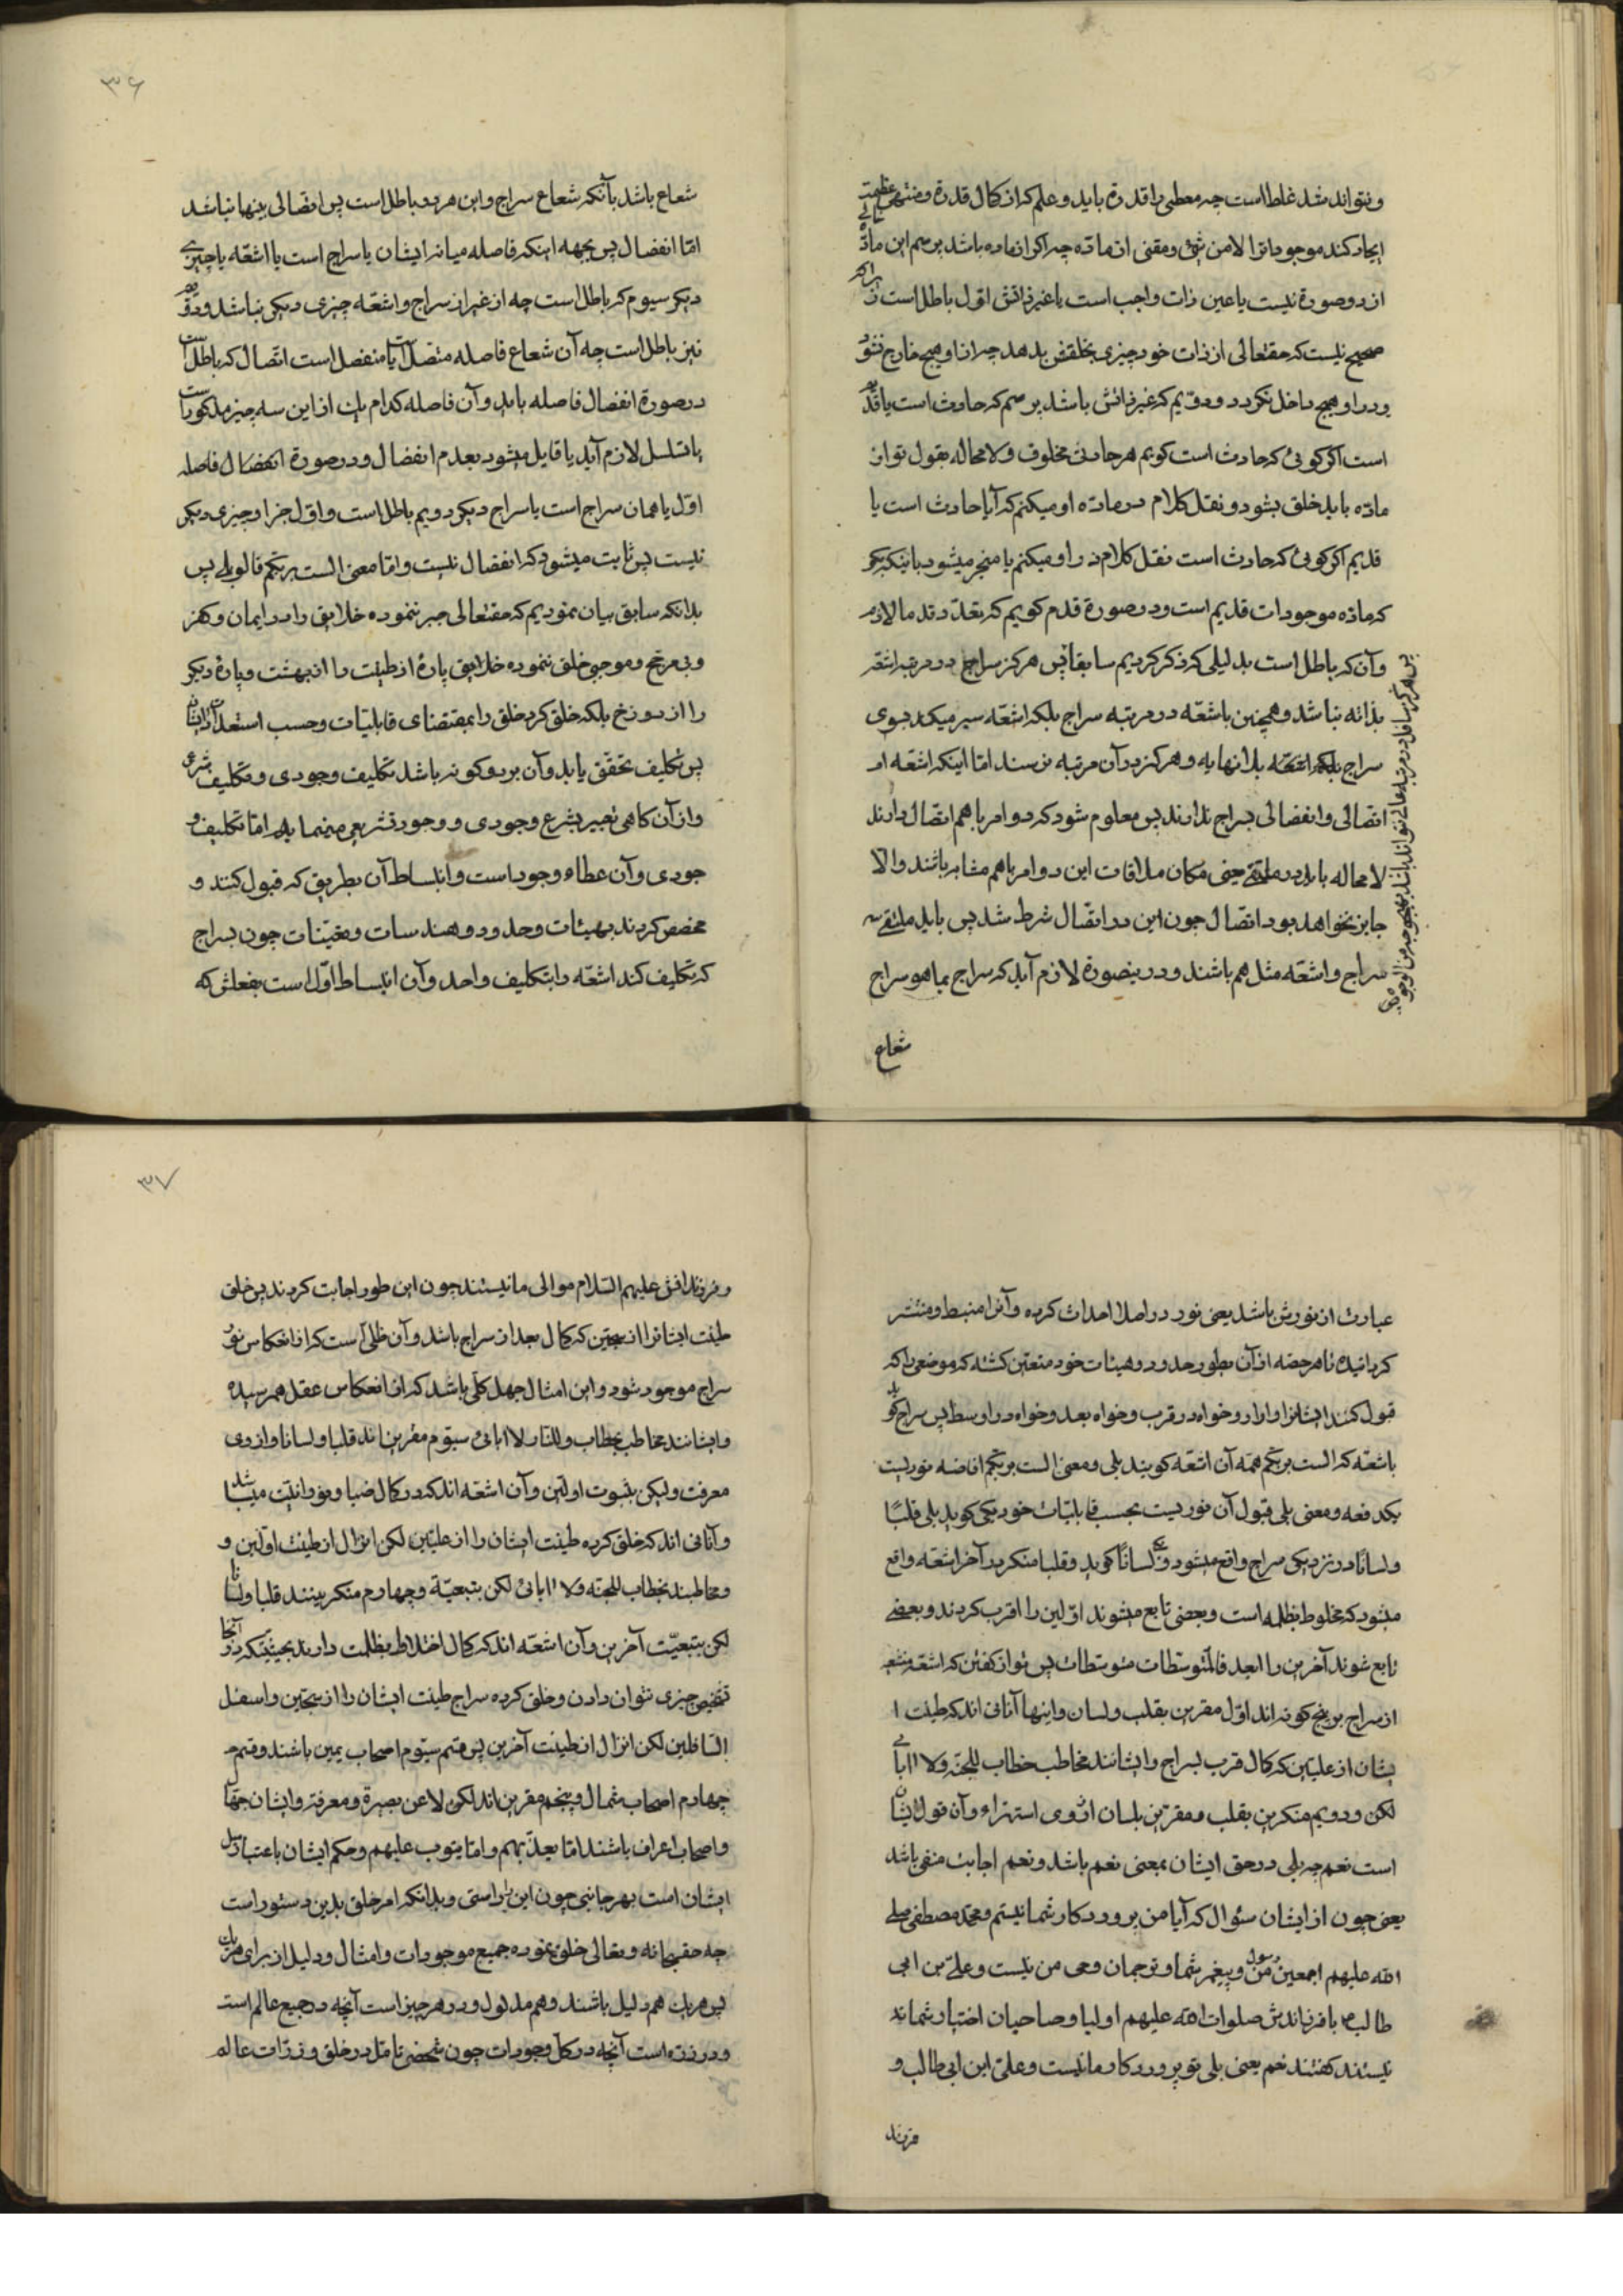 و نتواند شد غلط است چه معطی را قدرة باید و علم که از کمال قدرة و منتهی عظمت
ایجاد کند موجوداترا لا من شیء و مقنی از مادّه چه اگر از ماده باشد پرسم این مادّه
از دو صورة نیست یا عین ذات واجب است یا غیر ذاتش اوّل باطل است زیرا که
صحیح نیست که حقتعالی از ذات خود چیزی بخلقش بدهد چه از او هیچ خارج نشود
و در او هیچ داخل نگردد و دویم که غیر ذاتش باشد پرسم که حادث است یا قدیم
است اگر گوئی که حادث است گویم هر حادثی مخلوق و لا محاله بقول تو از
مادّه باید خلق بشود و نقل کلام در مادّه او میکنم که آیا حادث است یا
قدیم اگر گوئی که حادث است نقل کلام در او میکنم یا منجر میشود باینکه
که مادّه موجودات قدیم است و در صورة قدم گویم که تعدّد قدما لازم
و آن که باطل است بدلیلی که ذکر کردیم سابقا پس هرگز سراج در مرتبه اشعّه
بذاته نباشد و همچنین باشعّه در مرتبه سراج بلکه اشعّه سیر میکند بسوی
سراج بلکه اشعّه بلا نهایه و هرگز در آن مرتبه نرسند امّا اینکه اشعّه او
اتصالی و انفصالی بسراج ندارند پس معلوم شود که دو امر با هم اتصال دارند
لا محاله باید در ملتقی یعنی مکان ملاقات این دو امر با هم مشابه باشند و الّا
جایز نخواهد بود اتصال چون این در اتّصال شرط شد پس باید ملتقی
سراج و اشعّه مثل هم باشند و در ینصورة لازم آید که سراج بما هو سراج
پس هرگز سافل در مرتبه عالی نتواند باشد بهیچوجه من الوجوه
شعاع
۳۶
شعاع باشد با آنکه شعاع سراج و این هر دو باطل است پس اتصالی بینهما نباشد
امّا انفصال پس بجهه اینکه فاصله میانه ایشان یا سراج است یا اشعّه یا چیزی
دیگر سیوم که باطل است چه از غیر از سراج و اشعّه چیزی دیگر نباشد و دویم
نیز باطل است چه آن شعاع فاصله متصل است یا منفصل است اتّصال که باطل است
در صورة انفصال فاصله باید و آن فاصله کدام یک از این سه چیز مذکور است
یا تسلسل لازم آید یا قایل میشود بعدم انفصال و در صورة انفصال فاصله
اوّل یا همان سراج است یا سراج دیگر دویم باطل است و اوّل جز او چیزی دیگر
نیست پس ثابت میشود که انفصال نیست و امّا معنی الست بربّکم قالوا بلی پس
بدانکه سابق بیان نمودیم که حقتعالی جبر ننموده خلایق را در ایمان و کفر
و بی مرجّح و موجبی خلق ننموده خلایق پارهٔ از طینت را از بهشت و پارهٔ دیگر
را از دوزخ بلکه خلق کرد خلق را بمقتضای قابلیّات و حسب استعدادات ایشان
پس تکلیف تحقق یابد و آن بر دو گونه باشد تکلیف وجودی و تکلیف شرعی
و از آن گاهی تعبیر بشرع وجودی و وجود تشریعی مینماید امّا تکلیف و
جودی و آن عطاء وجود است و انبساط آن بطریق که قبول کنند و
مخصص گردند بهیئات و حدود و هندسات و تعیّنات چون سراج
که تکلیف کند اشعّه را بتکلیف واحد و آن انبساط اوّل است بفعلش که
عبارت از نورش باشد یعنی نور در اصل احداث کرده و آنرا منبسط و منتشر
گردانیده تا هر حصّه از آن بطور حدود و هیئات خود متعیّن گشته که موضعی را که
قبول کنند ایشانرا وارد خواه در قرب و خواه بعد و خواه در اوسط پس سراج گوید
باشعّه که الست بربّکم همّه آن اشعّه گویند بلی و معنی الست بربّکم افاضه نوریست
یکدفعه و معنی بلی قبول آن نوریست بحسب قابلیّات خود یکی گوید بلی قلبًا
و لسانًا در نزدیکی سراج واقع میشود و یکی لسانًا گوید و قلبا منکر در آخر اشعّه واقع
میشود که مخلوط بظلمه است و بعضی تابع میشوند اوّلین را اقرب گردند و بعضی
تابع شوند آخرین را ابعد فالمتوسّطات متوسّطات پس توان گفتن که اشعّه منشعبه
از سراج بر پنج گونه اند اوّل مقرین بقلب و لسان و اینها آنانی اند که طینت ا
یشان از علیّین که کمال قرب بسراج و ایشانند مخاطب خطاب للجنّه و لا ابالی
لکن و دویم منکرین بقلب و مقرّین بلسان از روی استهزاء و آن قول ایشان
است نعم چه بلی در حق ایشان بمعنی نعم باشد و نعم اجابت منفی باشد
یعنی چون از ایشان سئوال که آیا من پروردگار شما نیستم و محمّد مصطفی صلی
الله علیهم اجمعین رسول من و پیغمبر شما و ترجمان وحی من نیست و علیّ بن ابی
طالب با فرزاندش صلوات الله علیهم اولیا و صاحبان اختیار شما ند
نیستند گفتند نعم یعنی بلی تو پروردگار ما نیست و علیّ ابن ابی طالب و
فرزند
۳۷
و فرزندانش علیهم السّلام موالی ما نیستند چون این طور اجابت کردند پس خلق
طینت ایشانرا از سجّین که کمال بعد از سراج باشد و آن ظلّی است که از انعکاس نور
سراج موجود شود و این امثال جهل کلّی باشد که از انعکاس عقل همرسیده
و ایشانند مخاطب بخطاب و للنّار لا ابالی سیّوم مقرین اند قلبا و لسانا و از روی
معرفت و لیکن بتبعیّت اوّلین و آن اشعّه اند که در کمال ضیا و نورانیّت میباشد
و آنانی اند که خلق کرده طینت ایشان را از علیّین لکن انزال از طینت اوّلین و
و مخاطبند بخطاب للجنّه و لا ابالی لکن بتبعیّة و چهارم منکرینند قلبا و لسانا
لکن بتبعیّت آخرین و آن اشعّه اند که کمال اختلاط بظلمت دارند بحیثیّتکه در آنجا
تشخیص چیزی نتوان دادن و خلق کرده سراج طینت ایشان را از سجّین و اسفل
السّافلین لکن انزال از طینت آخرین پس قسم سیّوم اصحاب یمین باشند و قسم
چهارم اصحاب شمال و پنجم مقرین اند لکن لا عن بصیرة و معرفة و ایشان جهّال
و اصحاب اعراف باشند امّا یعذّبهم و امّا یتوب علیهم و حکم ایشان باعتبار میل
ایشان است بهر جانبی چون این را داستی و بدانکه امر خلق بدین دستور است
چه حقسبحانه و تعالی خلق نموده جمیع موجودات و امثال و دلیل از برای هر یک
پس هر یک هم دلیل باشند و هم مدلول و در هر چیز است آنچه در جمیع عالم است
و در ذرّه است آنچه در کلّ وجودات چون شخصی تامّل در خلق و ذرّات عالم